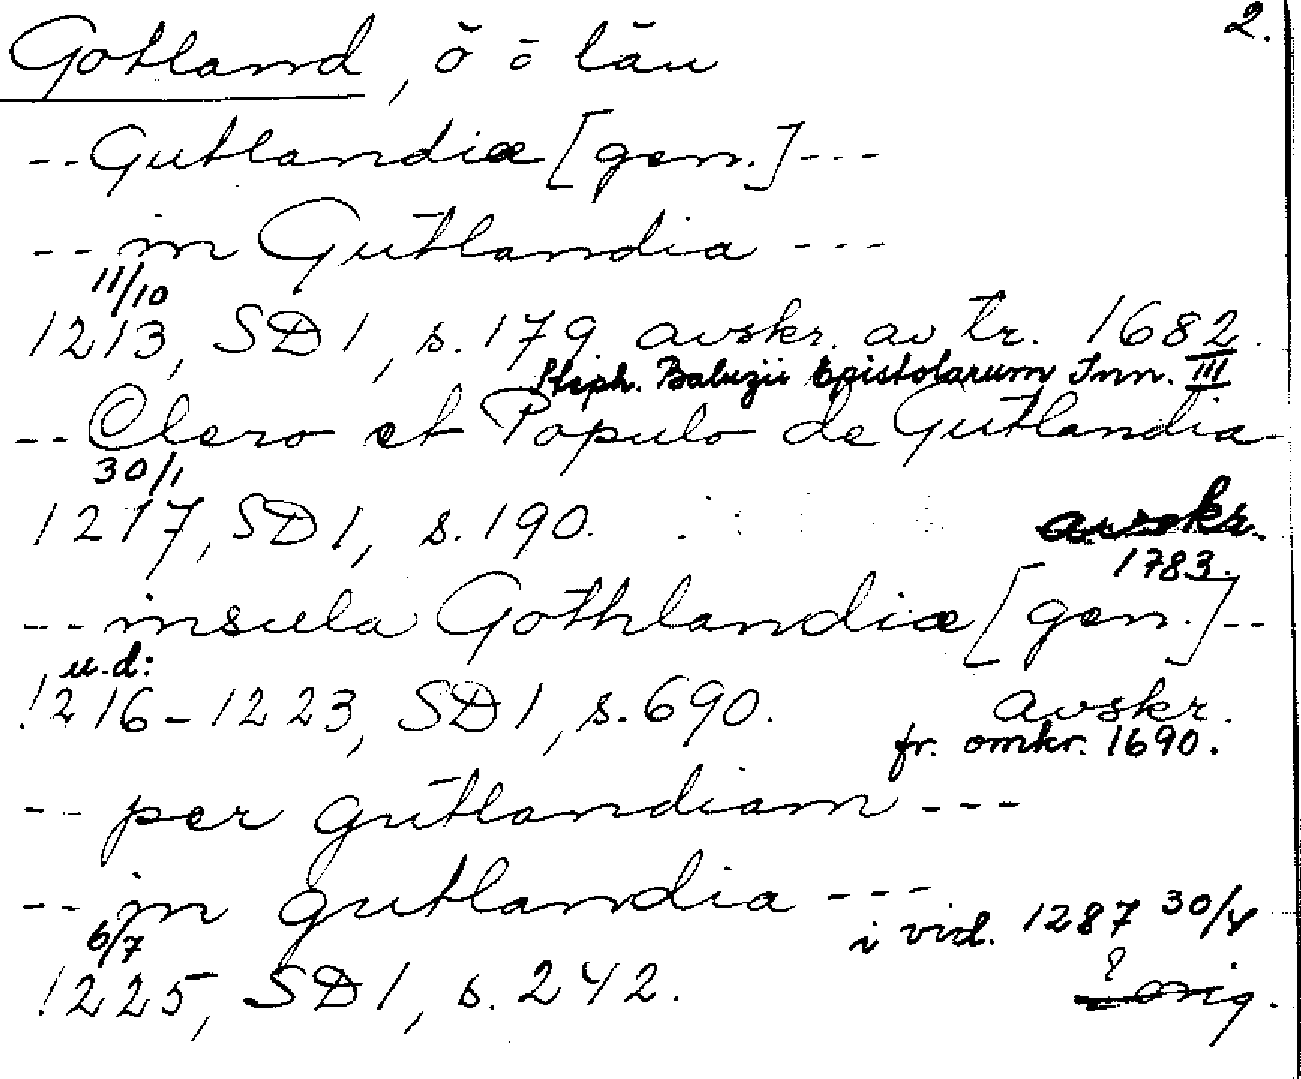 2.
Gotland, ö o län
-- Gutlandiæ [gen.] ---
-- in Gutlandia ---
11/10
1213, SD 1, s. 179 avskr. av tr. 1682.
Steph. Baluzii Epistolarum Inn. III
-- Clero et Populo de Gutlandia -
30/1
1217, SD 1, s. 190. avskr.
1783.
-- insula Gothlandiæ [gen.] --
u.d:
1216-1223, SD 1, s. 690. avskr.
fr. omkr. 1690.
-- per gutlandiam ---
-- in gutlandia ---
6/7 i vid. 1287 30/4
1225, SD 1, s. 242. ? orig.